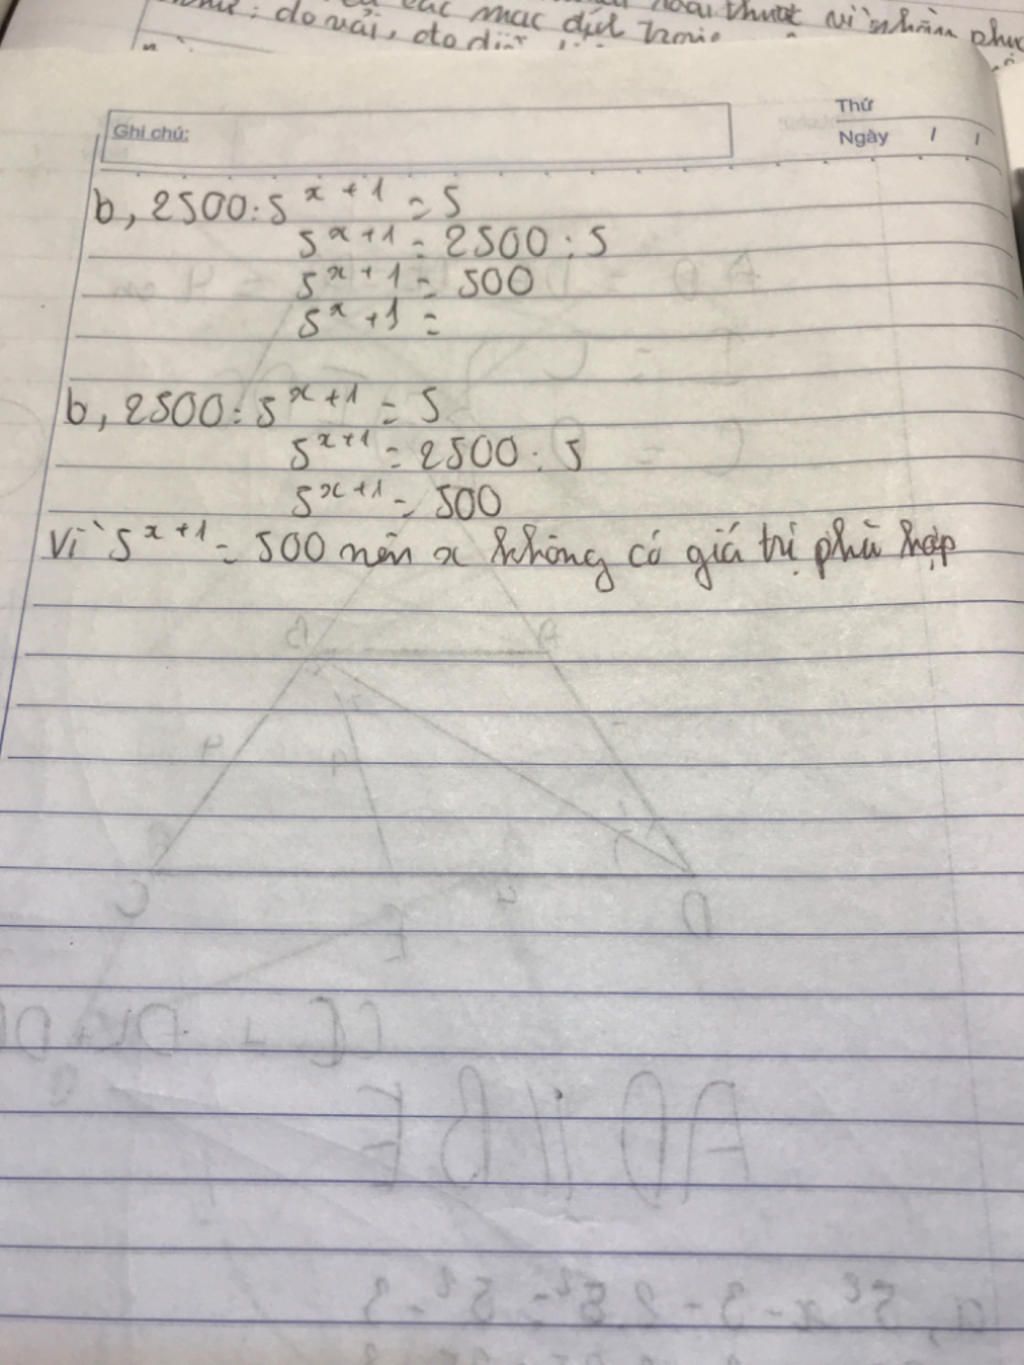 do vải, do
Ghi chú:
Thứ
Ngày / /
b, 2500 : 5^{x+1} = 5
5^{x+1} = 2500 : 5
5^{x+1} = 500
5^x + 1 =
b, 2500 : 5^{x+1} = 5
5^{x+1} = 2500 : 5
5^{x+1} = 500
Vì 5^{x+1} = 500 nên x không có giá trị phù hợp